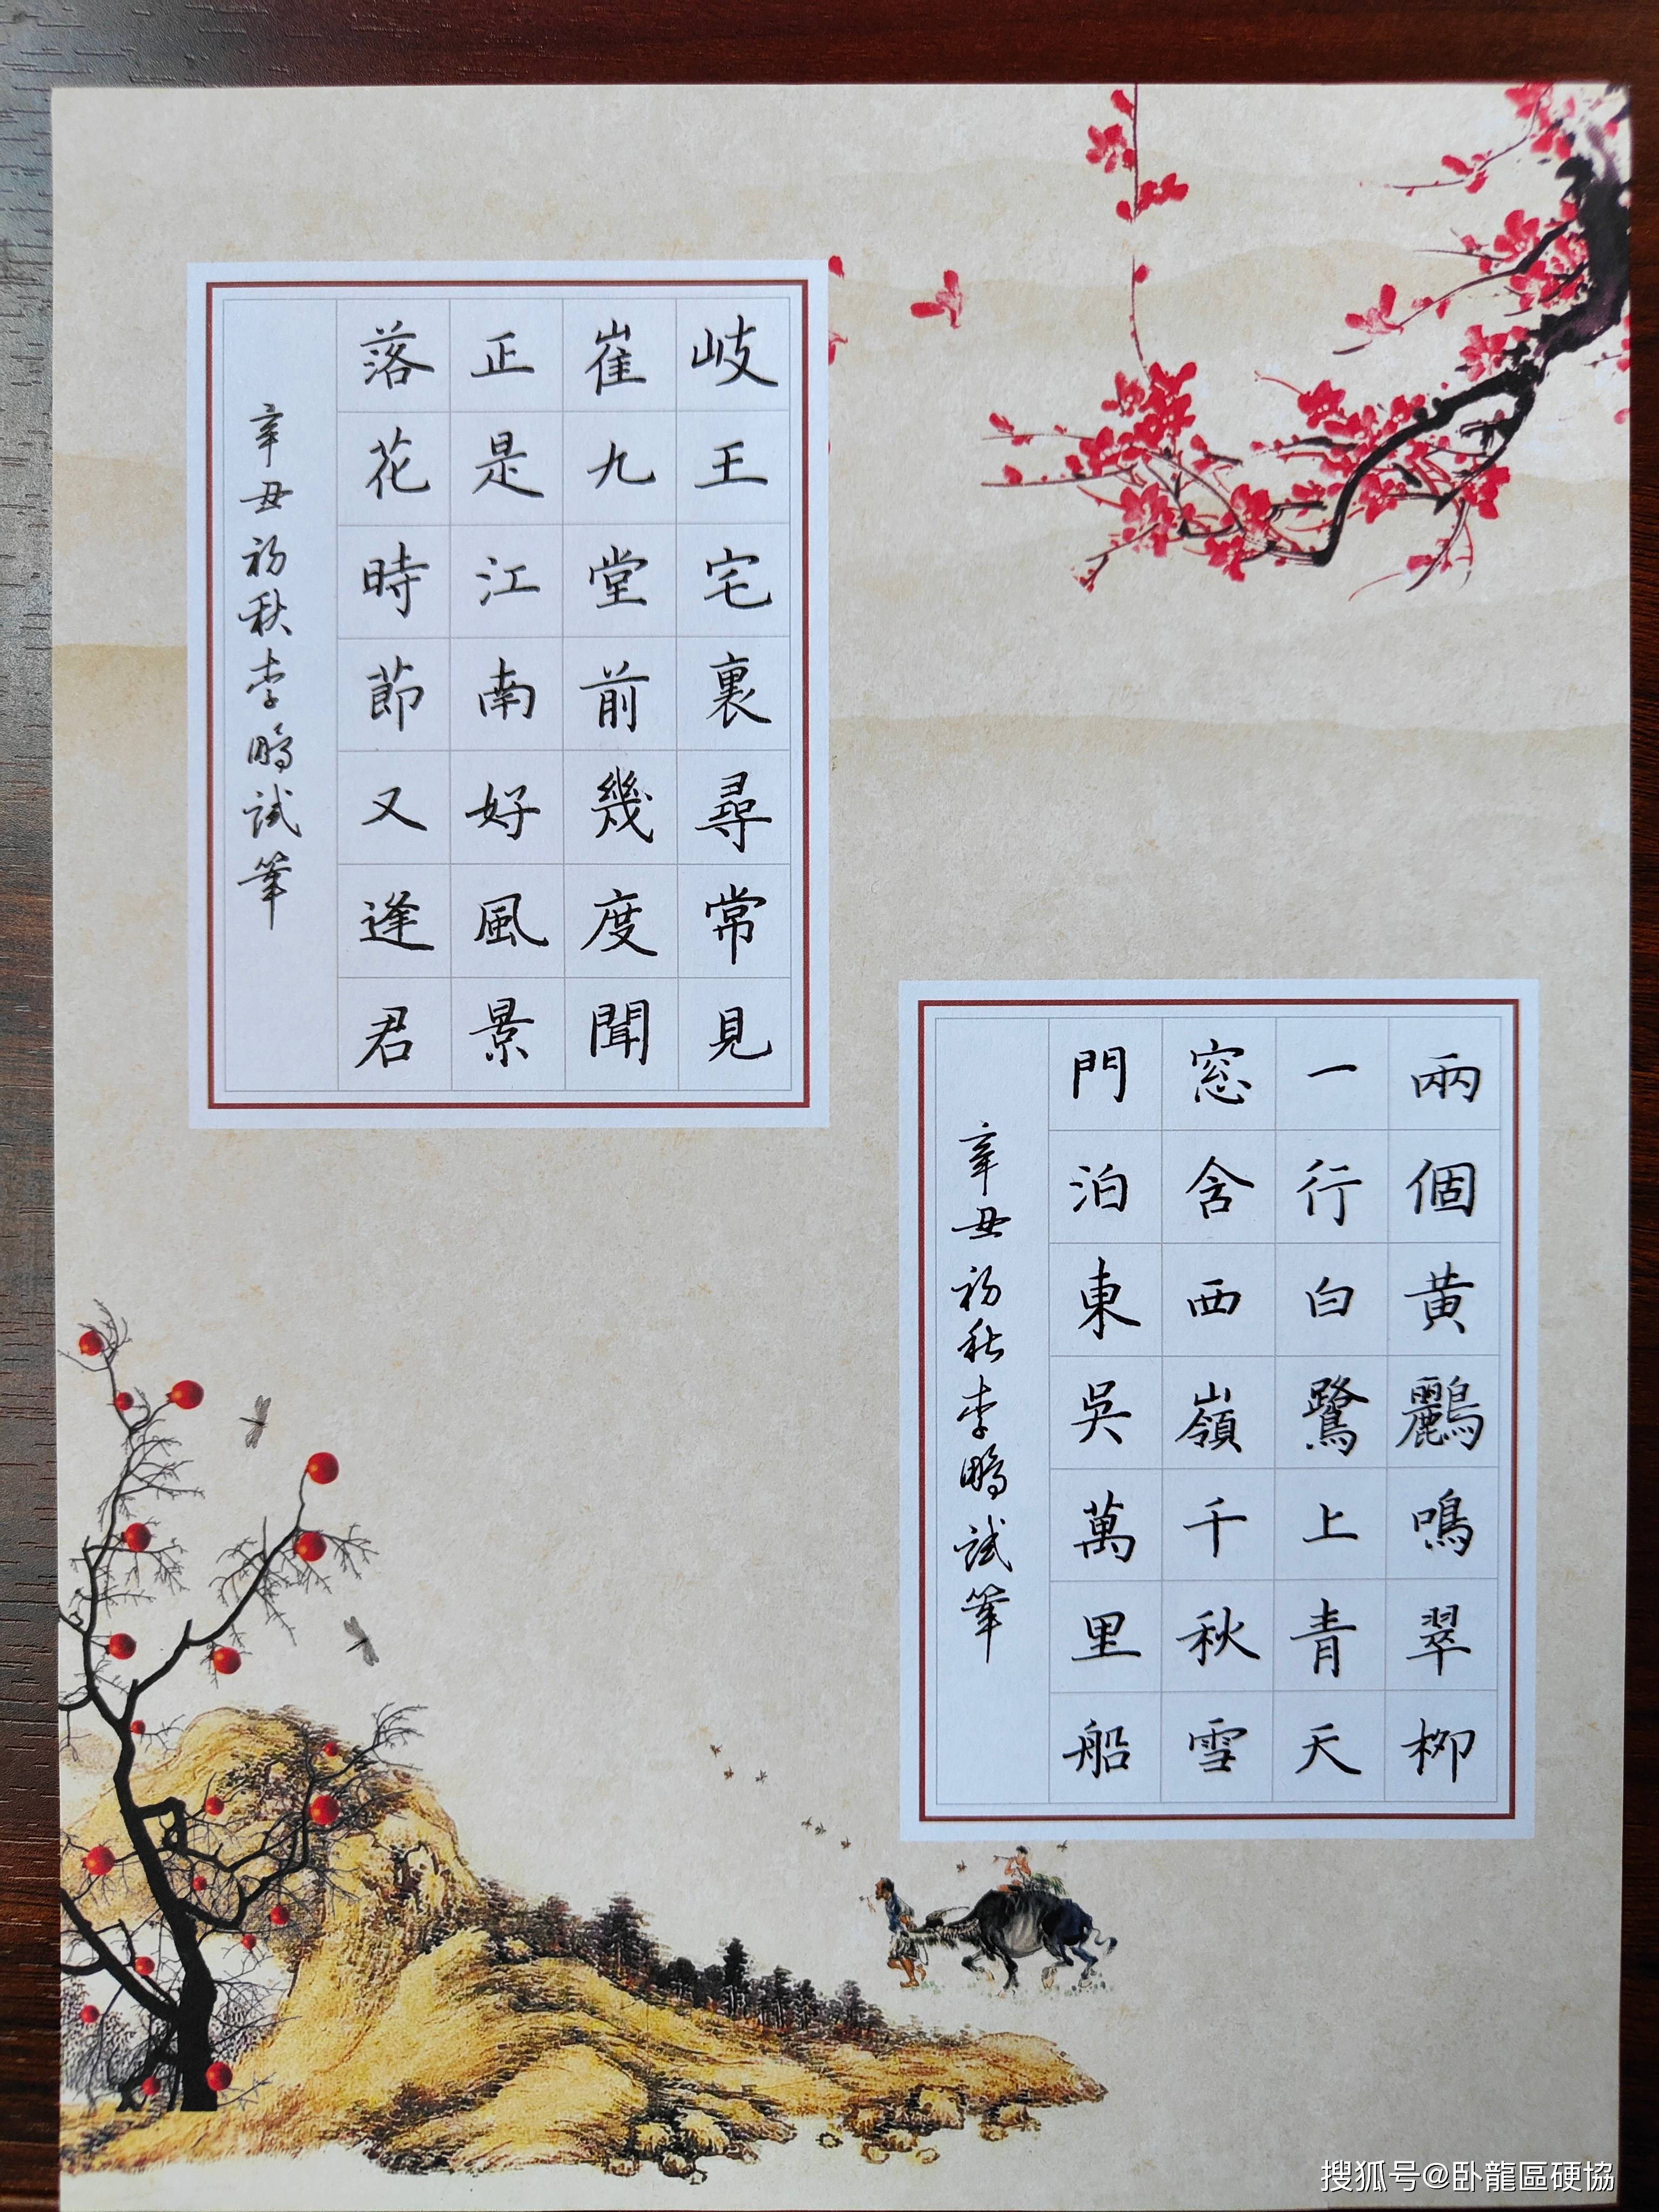 岐王宅裏尋常見
崔九堂前幾度聞
正是江南好風景
落花時節又逢君
辛丑初秋李鵬試筆
兩個黃鸝鳴翠柳
一行白鷺上青天
窓含西嶺千秋雪
門泊東吳萬里船
辛丑初秋李鵬試筆
搜狐号@卧龍區硬協